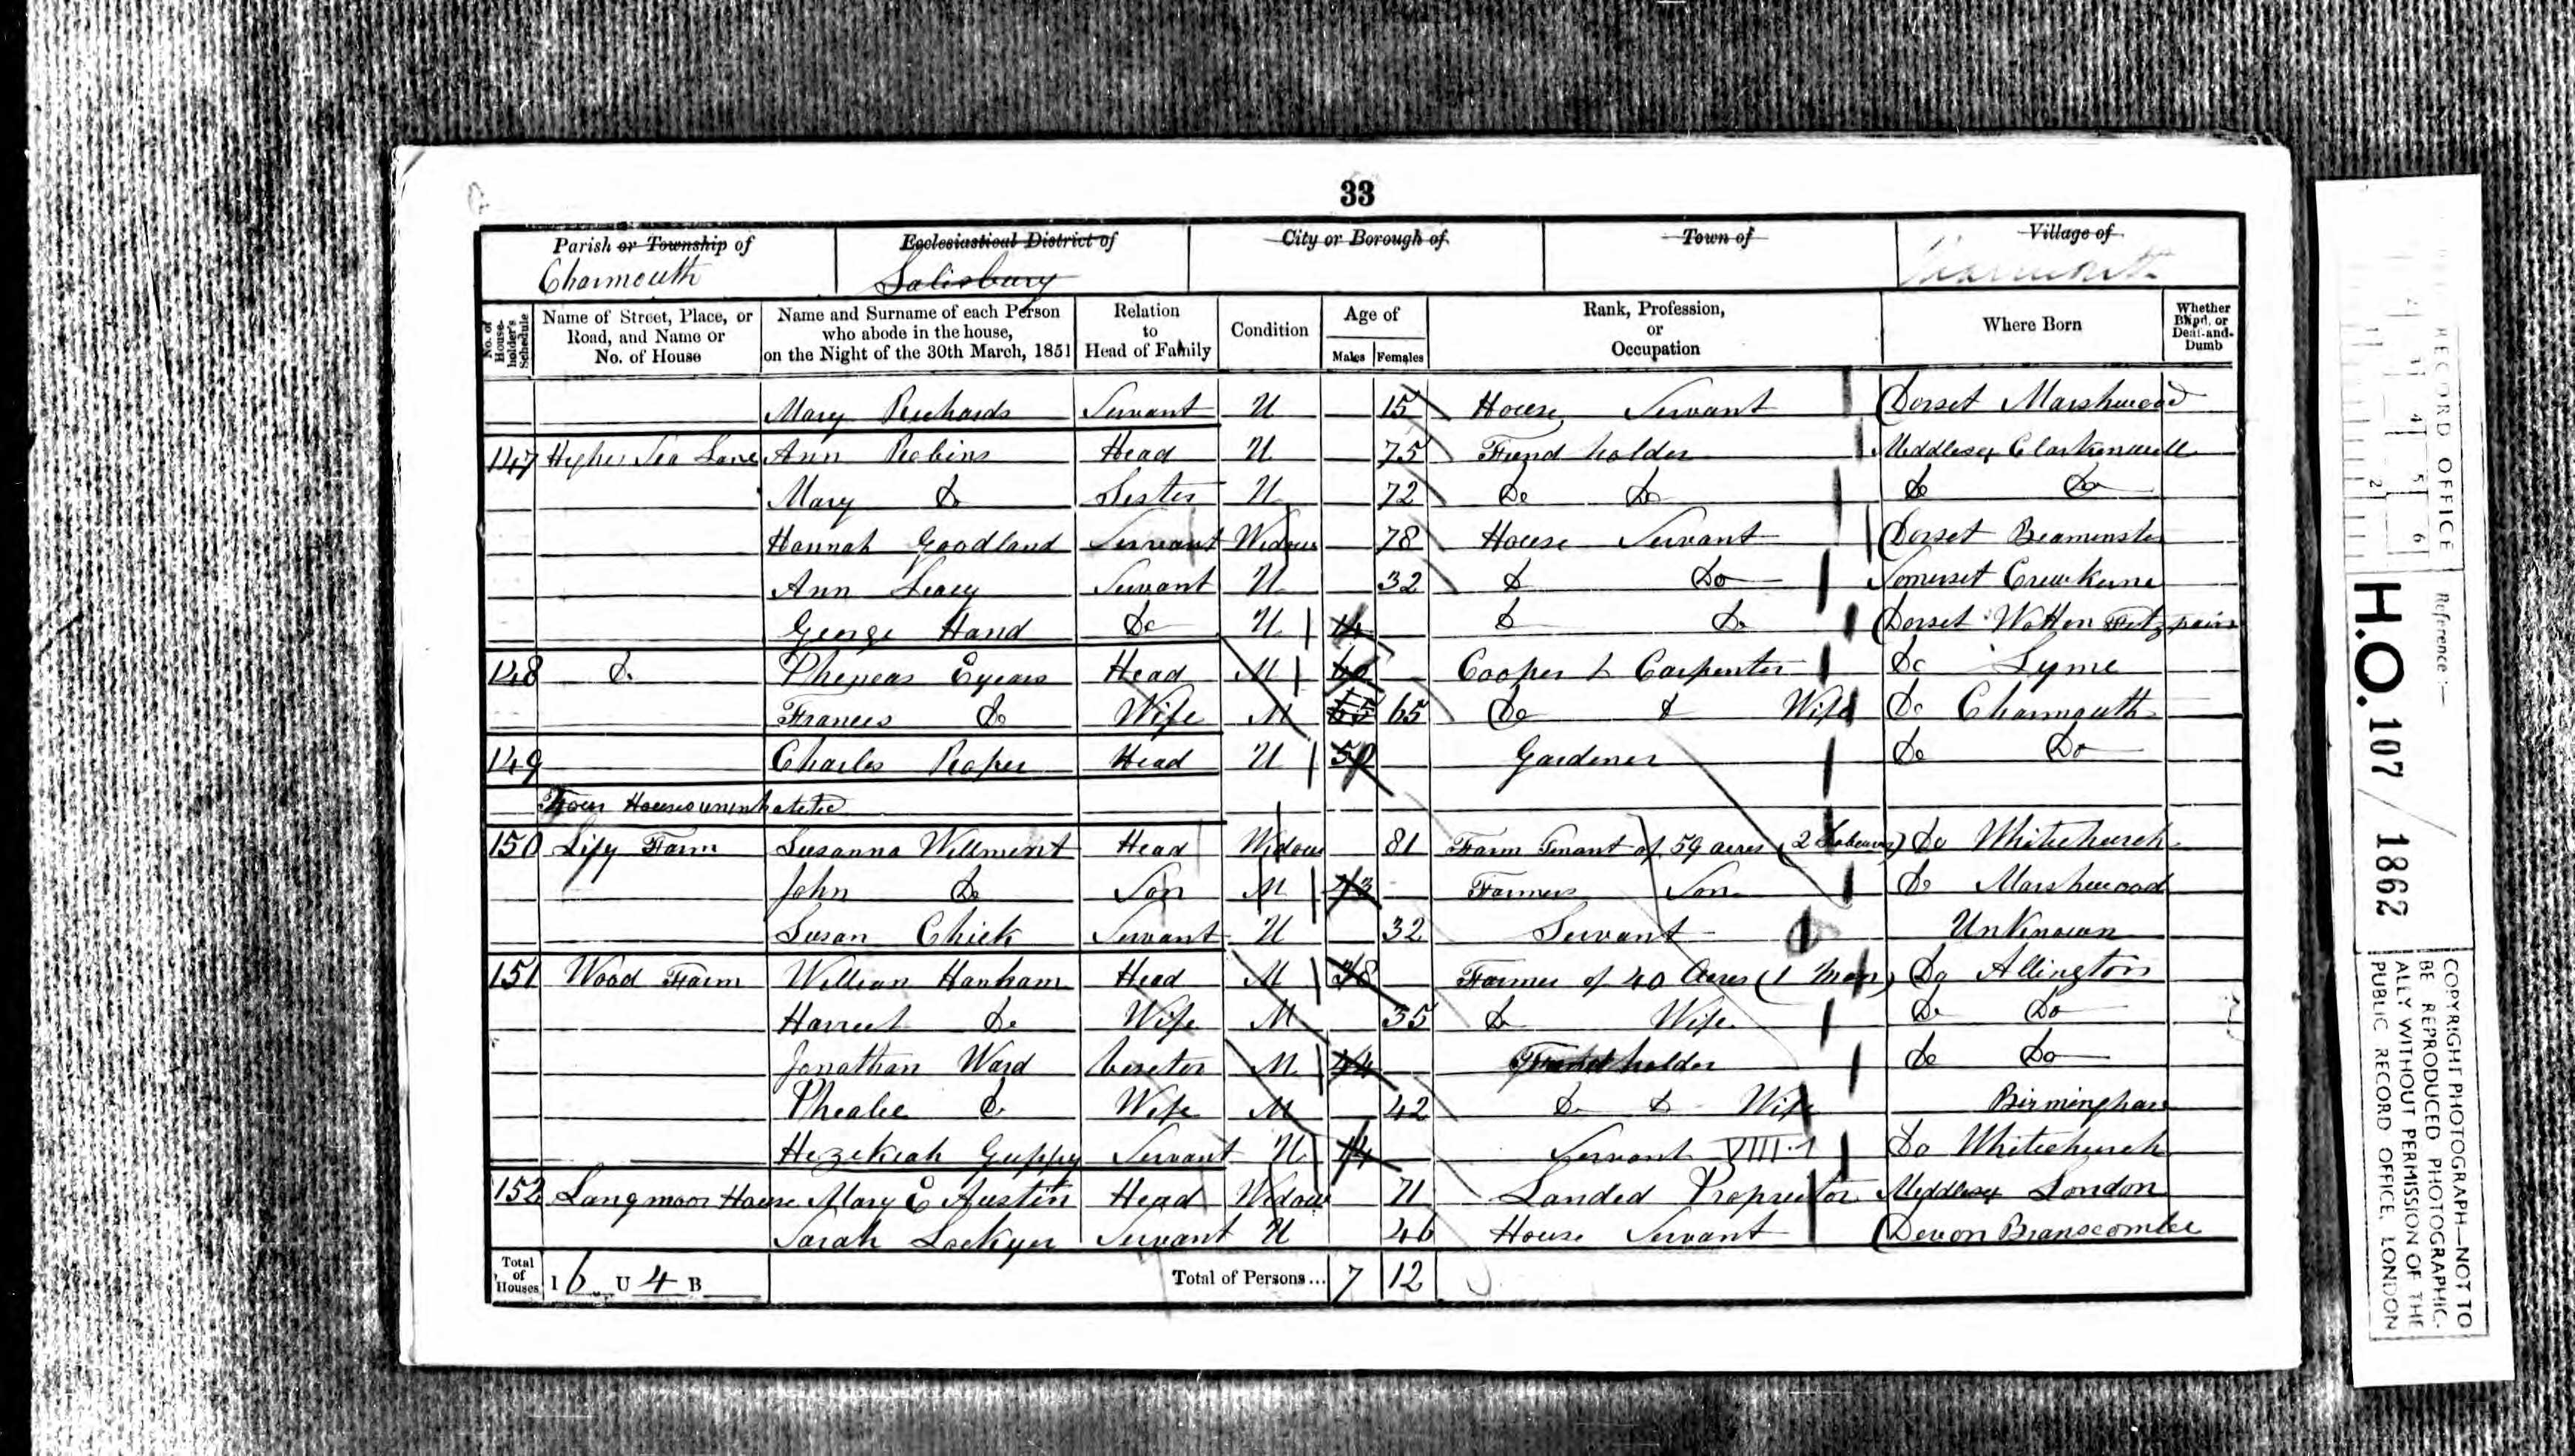 33
Parish or Township of Ecclesiastical District of City or Borough of Town of Village of
Charmouth Salisbury Charmouth
No. of Householder's Schedule Name of Street, Place, or Road, and Name or No. of House Name and Surname of each Person who abode in the house, on the Night of the 30th March, 1851 Relation to Head of Family Condition Age of Males Females Rank, Profession, or Occupation Where Born Whether Blind, or Deaf-and-Dumb
Mary Richards Servant U 15 House Servant Dorset Marshwood
147 Higher Sea Lane Ann Robins Head U 75 Fund holder Middlesex Clarkenwell
Mary Do Sister U 72 Do Do Do Do
Hannah Goodland Servant Widow 78 House Servant Dorset Beaminster
Ann Servant U 32 Do Do Somerset Crewkerne
George Hand Do U 14 Do Do Dorset Wotton Fitzpain
148 Do Head M Cooper & Carpenter Do Lyme
Frances Do Wife M 65 Do & Wife Do Charmouth
149 Charles Roper Head U 50 Gardener Do Do
Four Houses uninhabited
150 Lily Farm Susanna Willment Head Widow 81 Farm Tenant of 59 acres (2 Labourers) Do Whitechurch
John Do Son M 43 Farmers Son Do Marshwood
Susan Chick Servant U 32 Servant Unknown
151 Wood Farm William Hanham Head M 38 Farmer of 40 Acres (1 Man) Do Allington
Harriet Do Wife M 35 Do Wife Do Do
Jonathan Ward Visitor M 44 Fundholder Do Do
Do Wife M 42 Do Do Wife Birmingham
Hezekiah Guppy Servant U 14 Servant Do Whitechurch
152 Langmoor House Mary E Austin Head Widow 71 Landed Proprietor Middlesex London
Sarah Lockyer Servant U 46 House Servant Devon Branscombe
Total of Houses I 6 U 4 B Total of Persons... 7 12
RECORD OFFICE Reference:—
1 2 3 4 5 6
H.O. 107 / 1862
COPYRIGHT PHOTOGRAPH—NOT TO
BE REPRODUCED PHOTOGRAPHIC-
ALLY WITHOUT PERMISSION OF THE
PUBLIC RECORD OFFICE, LONDON